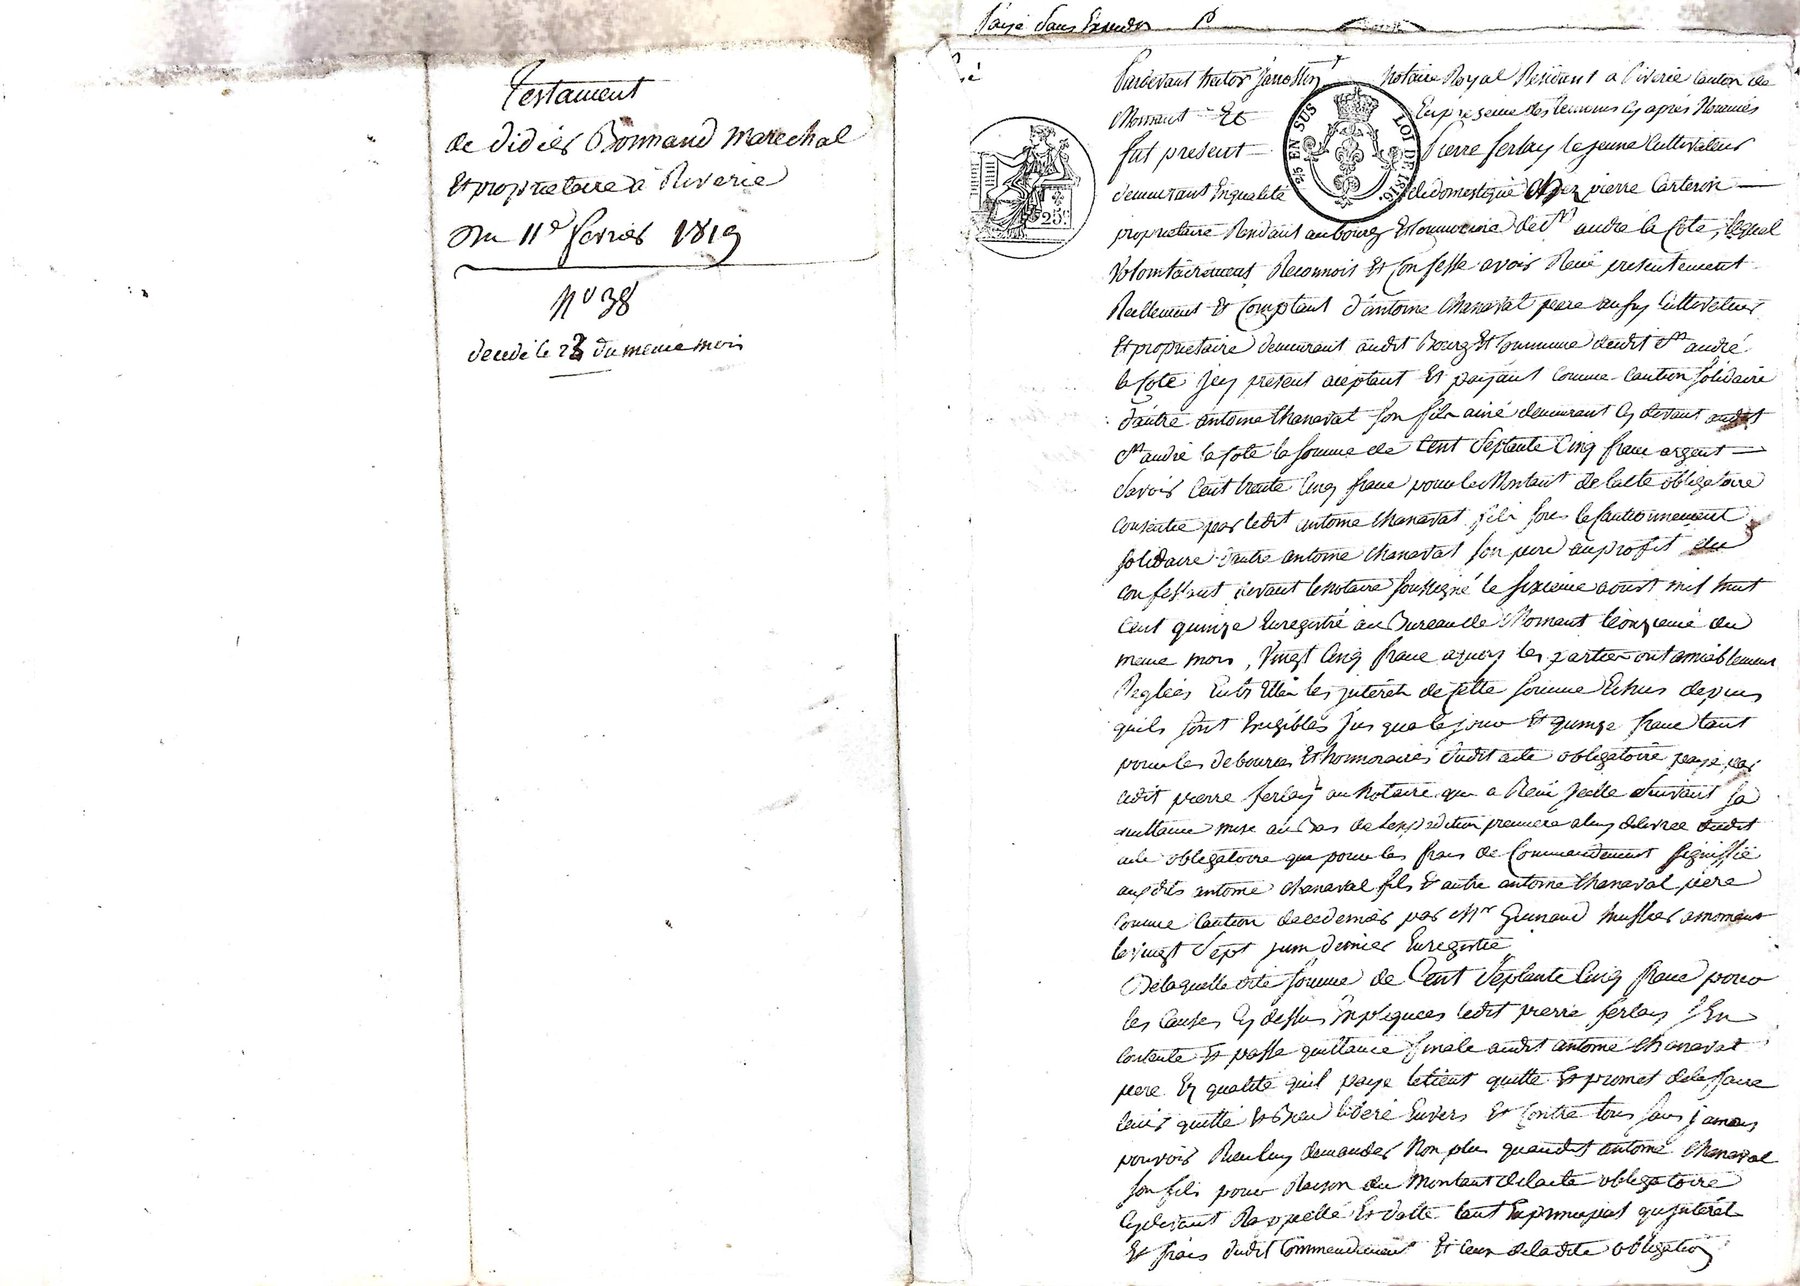 Testament
de didier Bonnand Marechal
Et proprietaire à Riverie
Du 11e fevrier 1819
No 38
decedé le 23 du meme mois
payé Sans Extrait
Pardevant hector Janossin Notaire Royal Resident a Riverie canton de
Mornant Et En presence des temoins cy après Nommés
fut present Pierre ferlay le jeune Cultivateur
demeurant En qualité de domestique chez pierre Carteron
proprietaire Rendant au bourg Et Commune de St andré la Cote, lequel
Volontairement Reconnoit Et Confesse avoir Recu presentement
Reellement Et Comptant d'antoine Chanavat pere aussy Cultivateur
Et proprietaire demeurant audit Bourg Et Commune dudit St andré
la Cote Jcy present aceptant Et payant comme caution Solidaire
d'autre antoine Chanavat Son fils ainé demeurant Cy devant audit
St andré la Cote la Somme de Cent Septante Cinq franc argent
Savoir Cent trente Cinq franc pour le Montant de lacte obligatoire
Consentie par ledit antoine Chanavat fils Sous le Cautionnement
Solidaire d'autre antoine Chanavat Son pere au profit du
Confessant devant le Notaire Soussigné le Sixieme aoust mil huit
Cent quinze Enregistré au Bureau de Mornant le onzieme du
meme mois, Vingt Cinq franc a quoy les parties ont amiablement
Reglées Entr Elles les jnterêts de Cette Somme Echus depuis
quils Sont Exigibles Jusqua Ce jour Et quinze franc tant
pour les debources Et honnoraires dudit acte obligatoire payé par
ledit pierre ferlay au Notaire qui a Recu Jcelle Suivant Sa
quittance mise au Bas de lexpedition premiere a luy delivrée dudit
acte obligatoire que pour les frais de Commandement Signiffié
auxdits antoine Chanaval fils Et autre antoine Chanaval pere
Comme Caution de ce dernier par Mr Guinand huissier a mornant
le vingt Sept juin dernier Enregistré
De laquelle dite Somme de Cent Septante Cinq franc pour
les Causes Cy dessus Expliquées ledit pierre ferlay S'En
Contente Et passe quittance finale audit antoine Chanavat
pere En qualité quil paye le tient quitte Et promet de le faire
tenir quitte Et Bien liberé Envers Et Contre tous Sans jamais
pouvoir Rien luy demander Non plus quaudit antoine Chanaval
Son fils pour Raison du Montant de lacte obligatoire
Cy devant Rappellé Et datté tant En principal qu jnterêt
Et frais dudit Commandement Et Ceux de ladite obligation